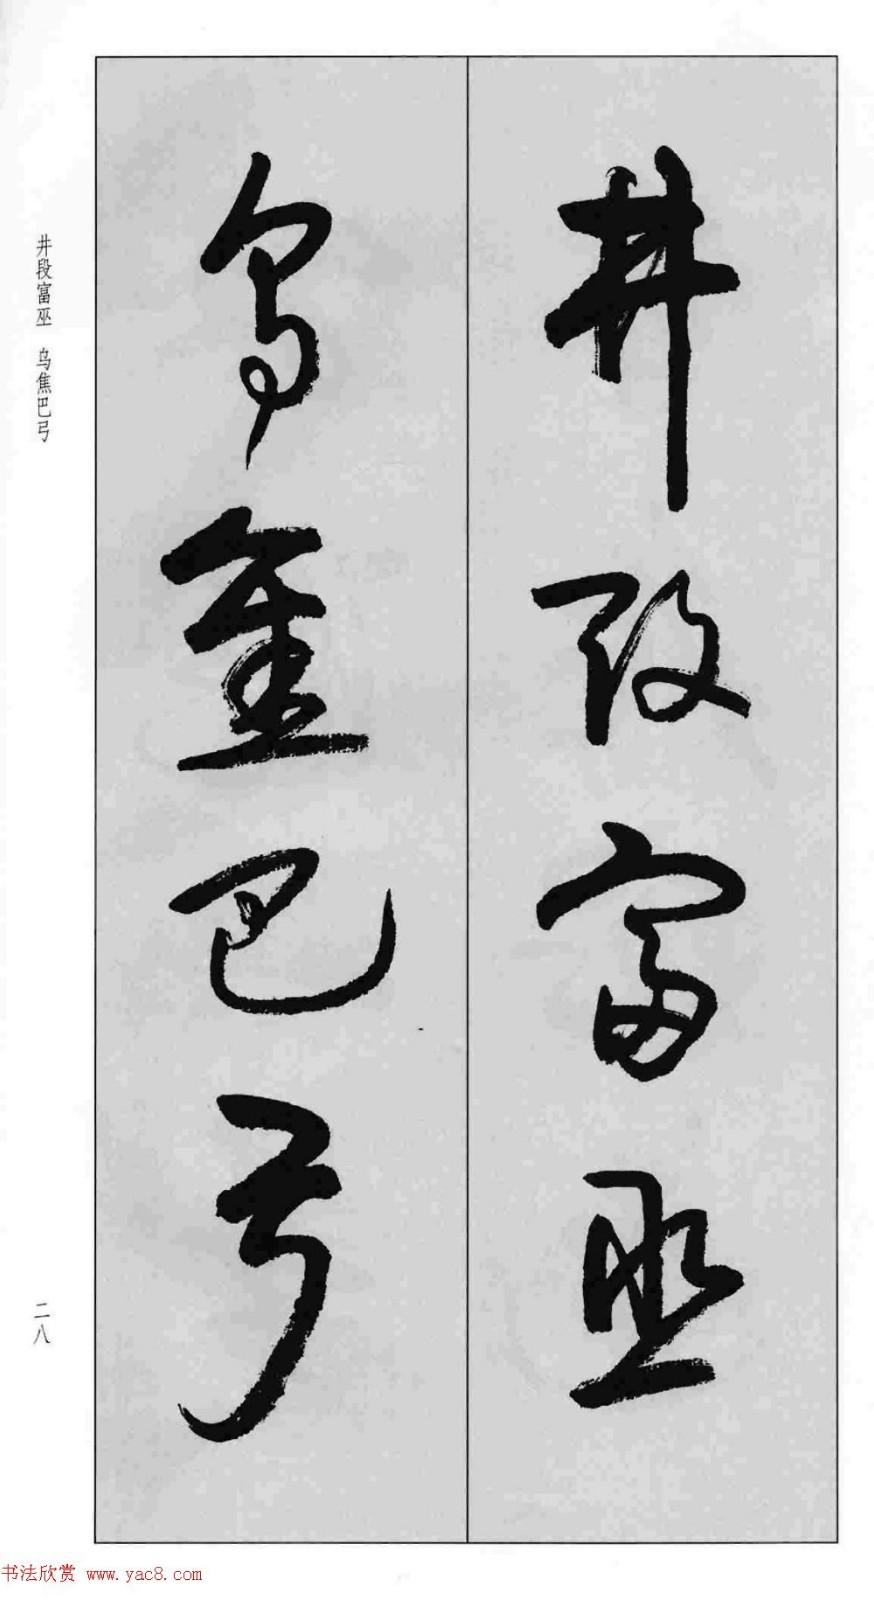 井段富巫
乌焦巴弓
井段富巫 乌焦巴弓
二八
书法欣赏 www.yac8.com